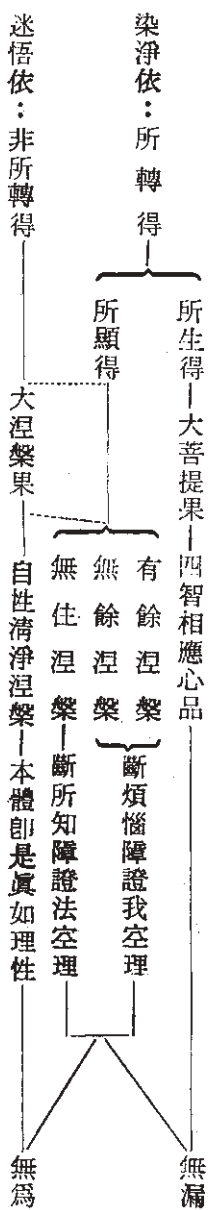 染淨依：所轉得
所生得—大菩提果—四智相應心品
無漏
所顯得
有餘涅槃
無餘涅槃
斷煩惱障證我空理
無住涅槃—斷所知障證法空理
迷悟依：非所轉得—大涅槃果—自性清淨涅槃—本體卽是眞如理性
無爲